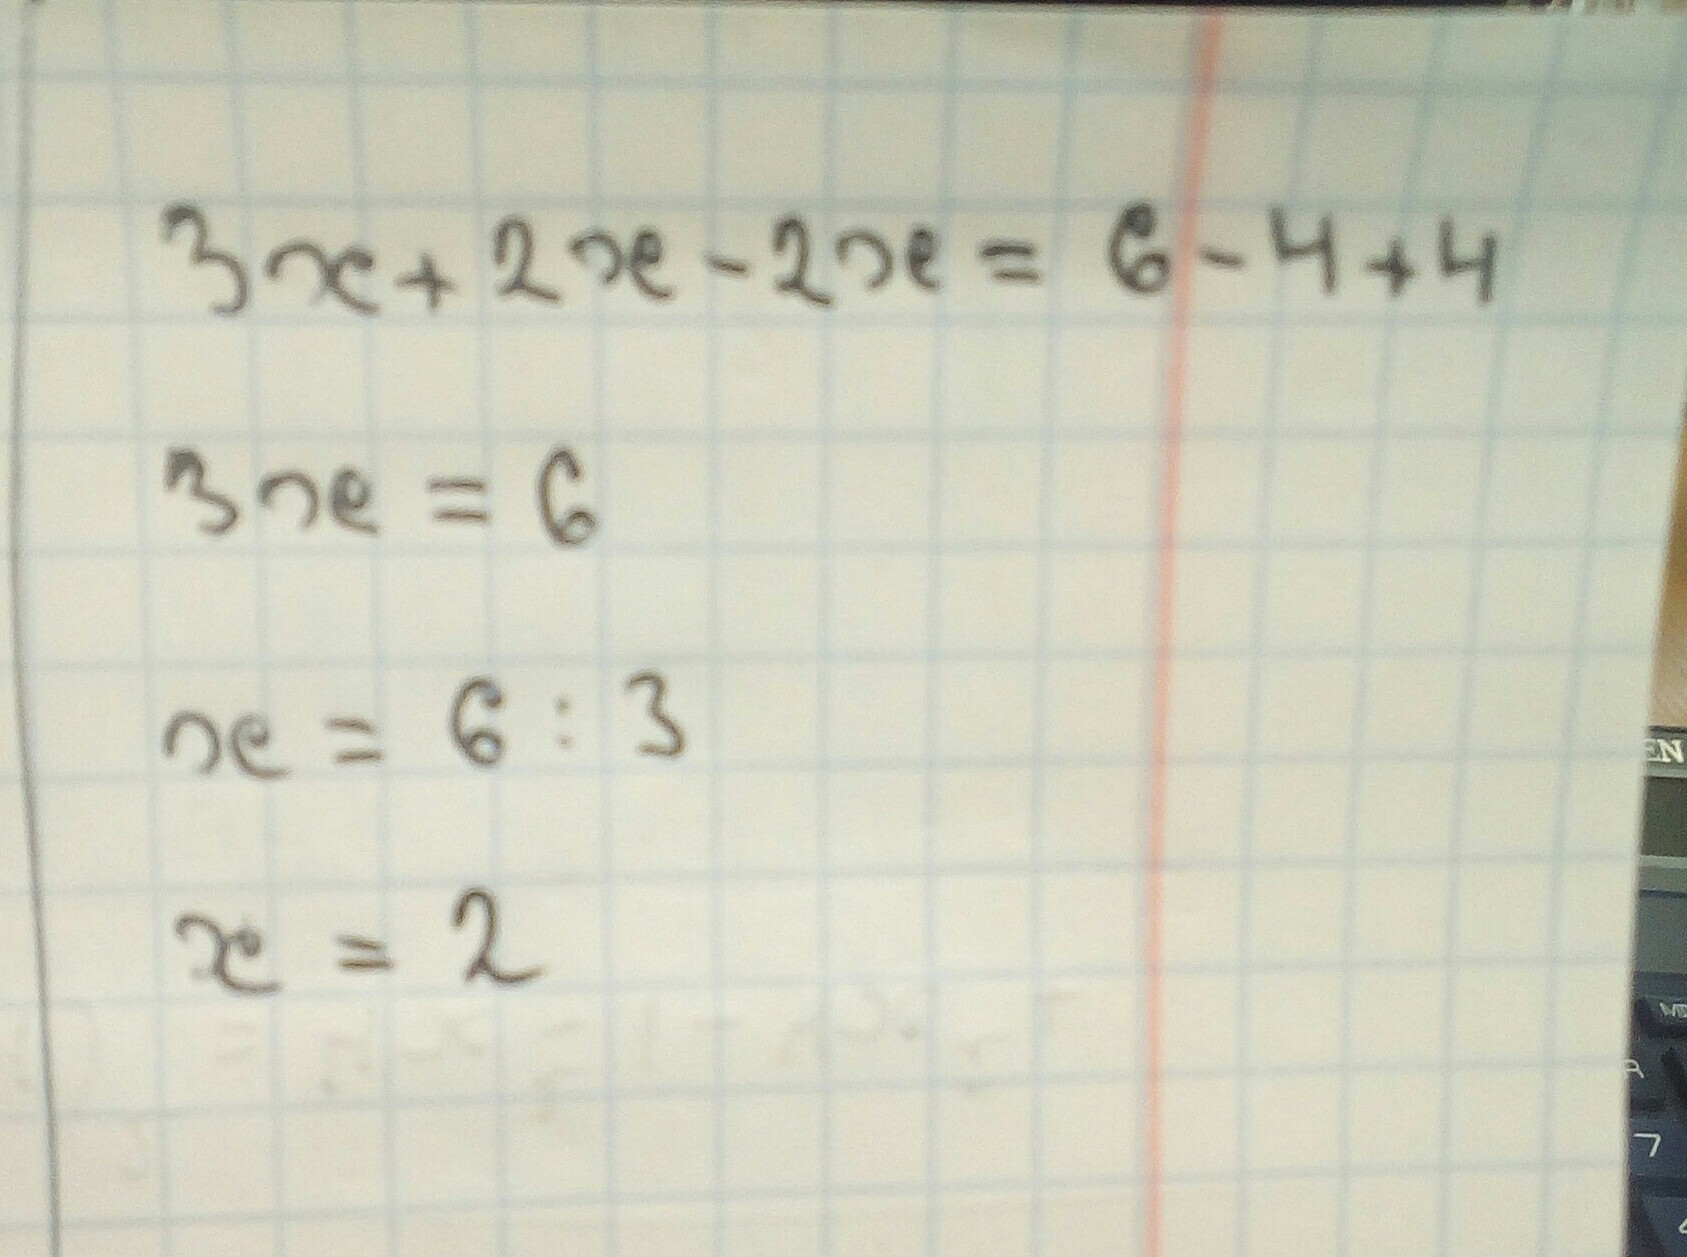 3x+2x-2x=6-4+4
3x=6
x=6:3
x=2
EN
7